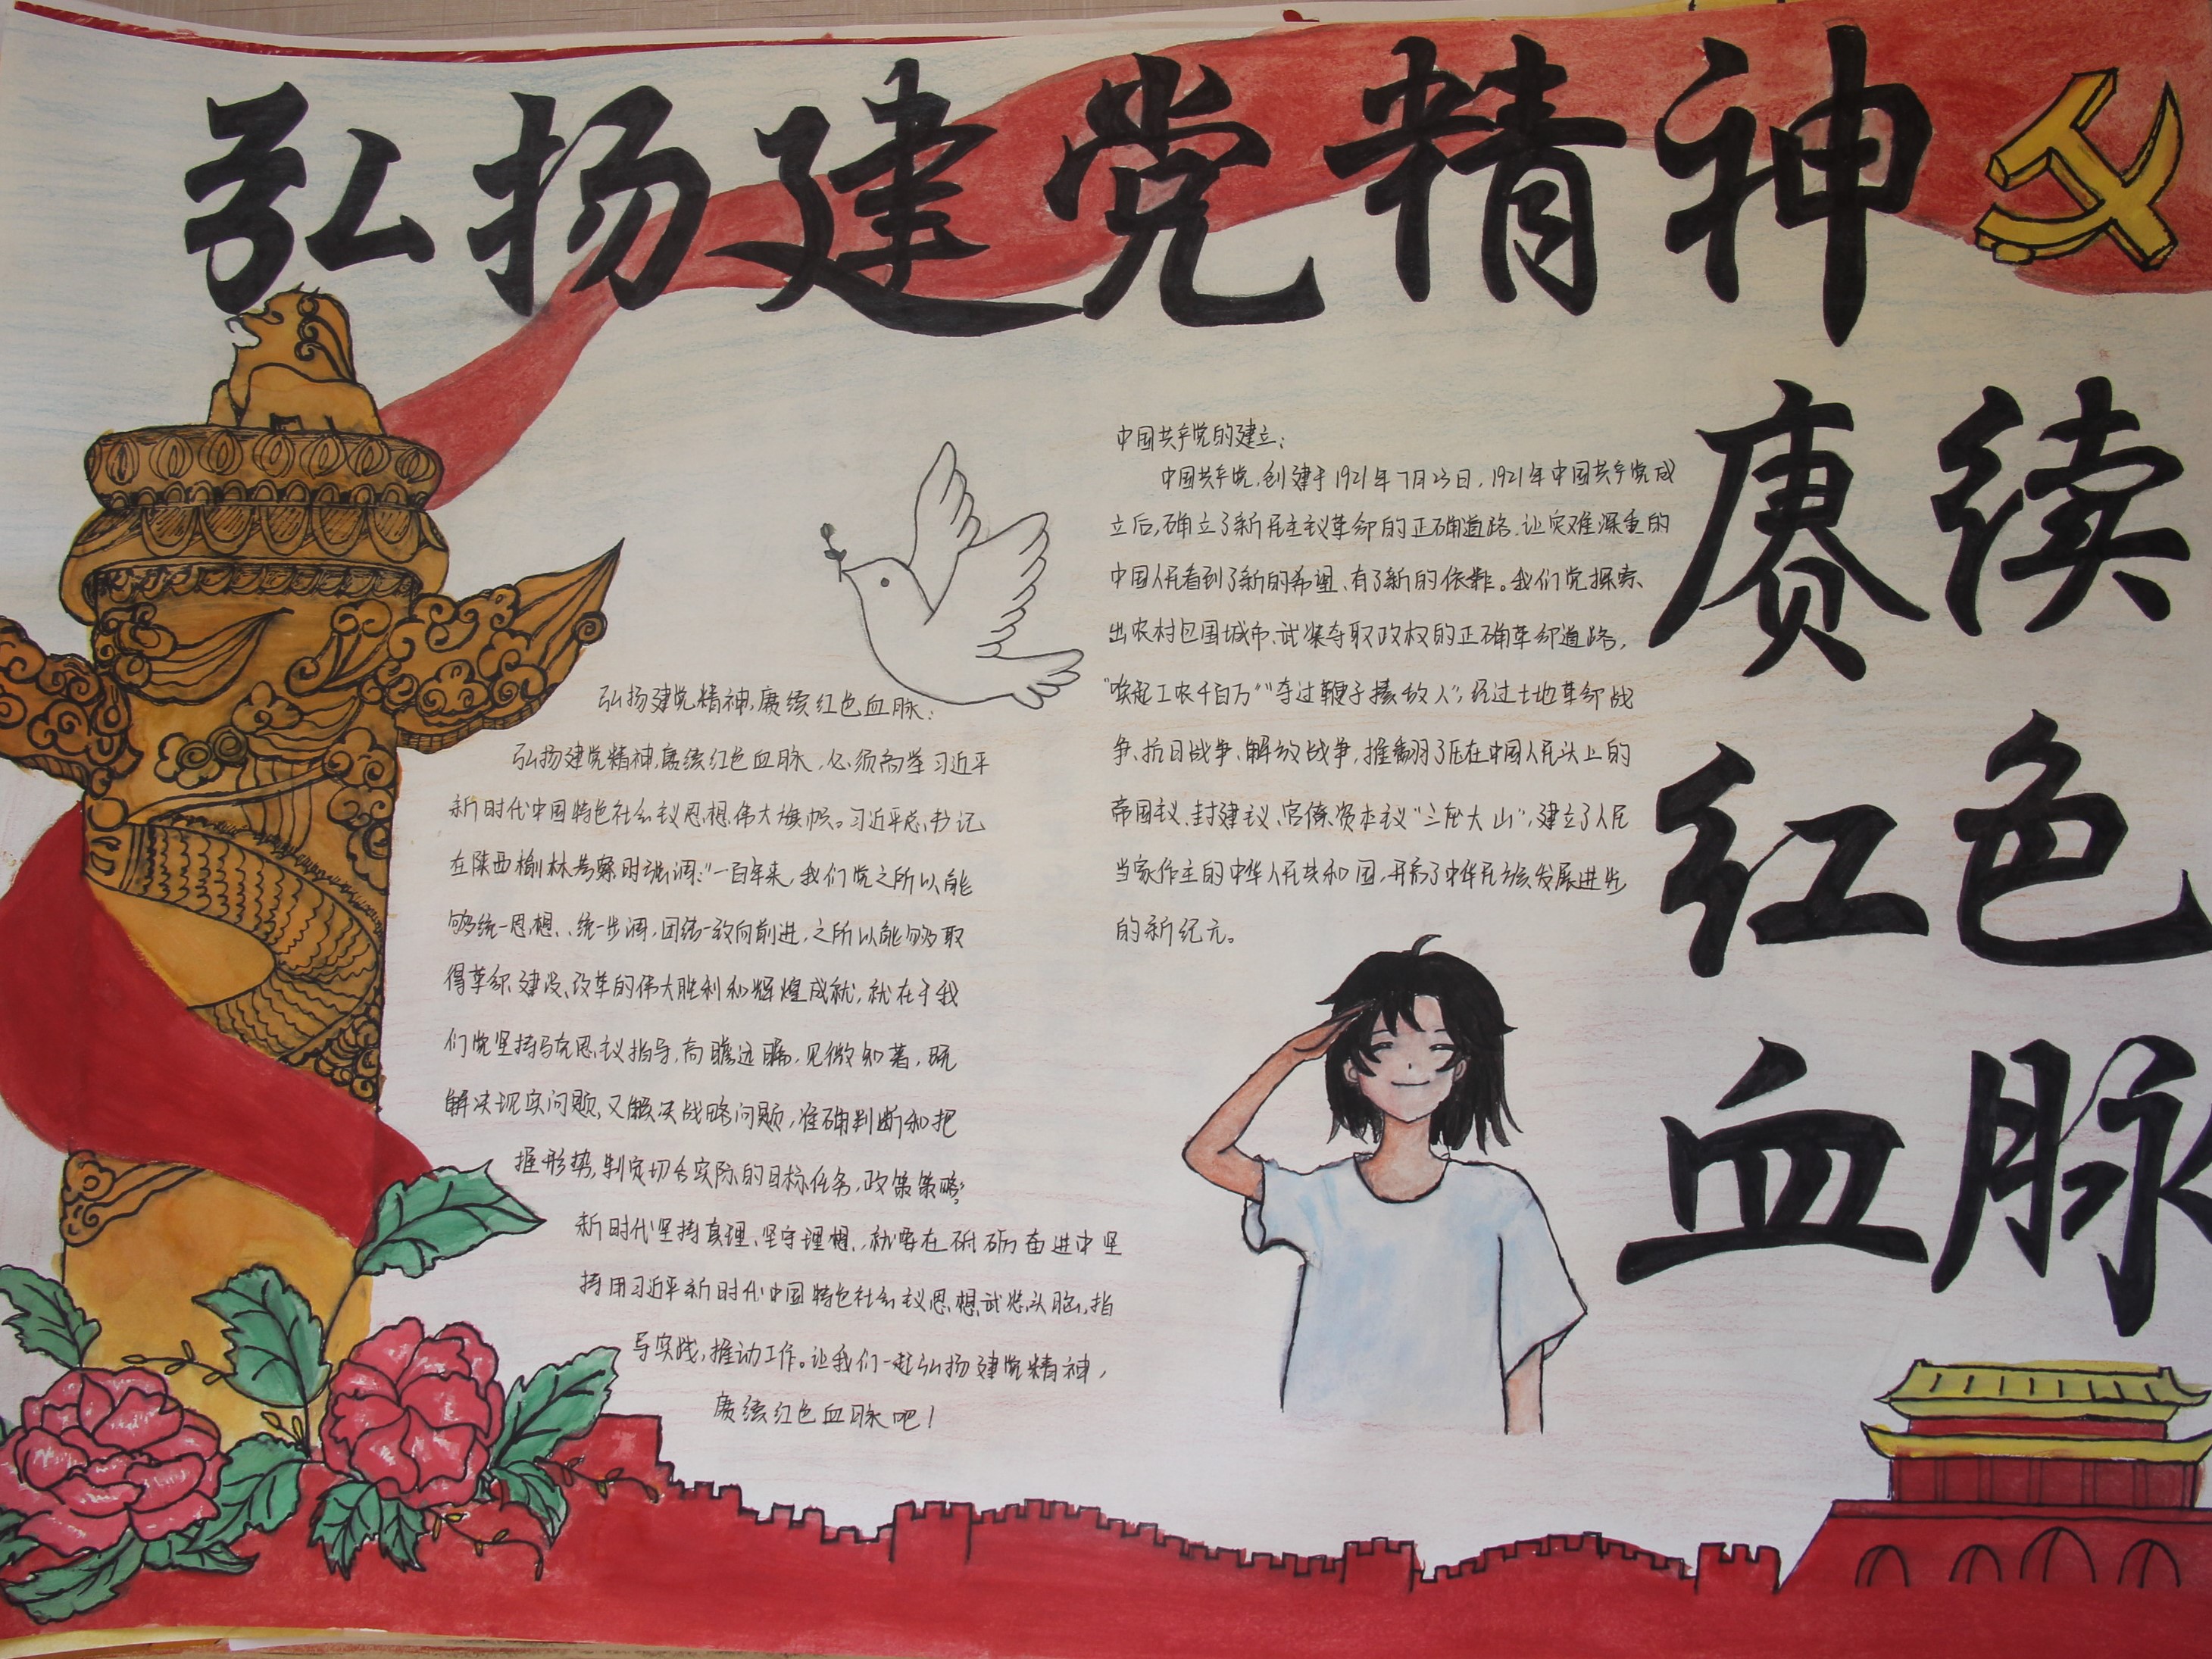 弘扬建党精神
赓续
红色
血脉
弘扬建党精神,赓续红色血脉:
弘扬建党精神,赓续红色血脉,必须高举习近平
新时代中国特色社会主义思想伟大旗帜。习近平总书记
在陕西榆林考察时强调:"一百年来,我们党之所以能
够统一思想、统一步调,团结一致向前进,之所以能够取
得革命、建设、改革的伟大胜利和辉煌成就,就在于我
们党坚持马克思主义指导,高瞻远瞩,见微知著,既
解决现实问题,又解决战略问题,准确判断和把
握形势,制定切合实际的目标任务,政策策略"
新时代坚持真理、坚守理想,就要在砥砺奋进中坚
持用习近平新时代中国特色社会主义思想武装头脑,指
导实践,推动工作。让我们一起弘扬建党精神,
赓续红色血脉吧!
中国共产党的建立:
中国共产党,创建于1921年7月23日,1921年中国共产党成
立后,确立了新民主主义革命的正确道路,让灾难深重的
中国人民看到了新的希望、有了新的依靠。我们党探索
出农村包围城市、武装夺取政权的正确革命道路,
"唤起工农千百万""夺过鞭子揍敌人",经过土地革命战
争、抗日战争、解放战争,推翻了压在中国人民头上的
帝国主义、封建主义、官僚资本主义"三座大山",建立了人民
当家作主的中华人民共和国,开启了中华民族发展进步
的新纪元。